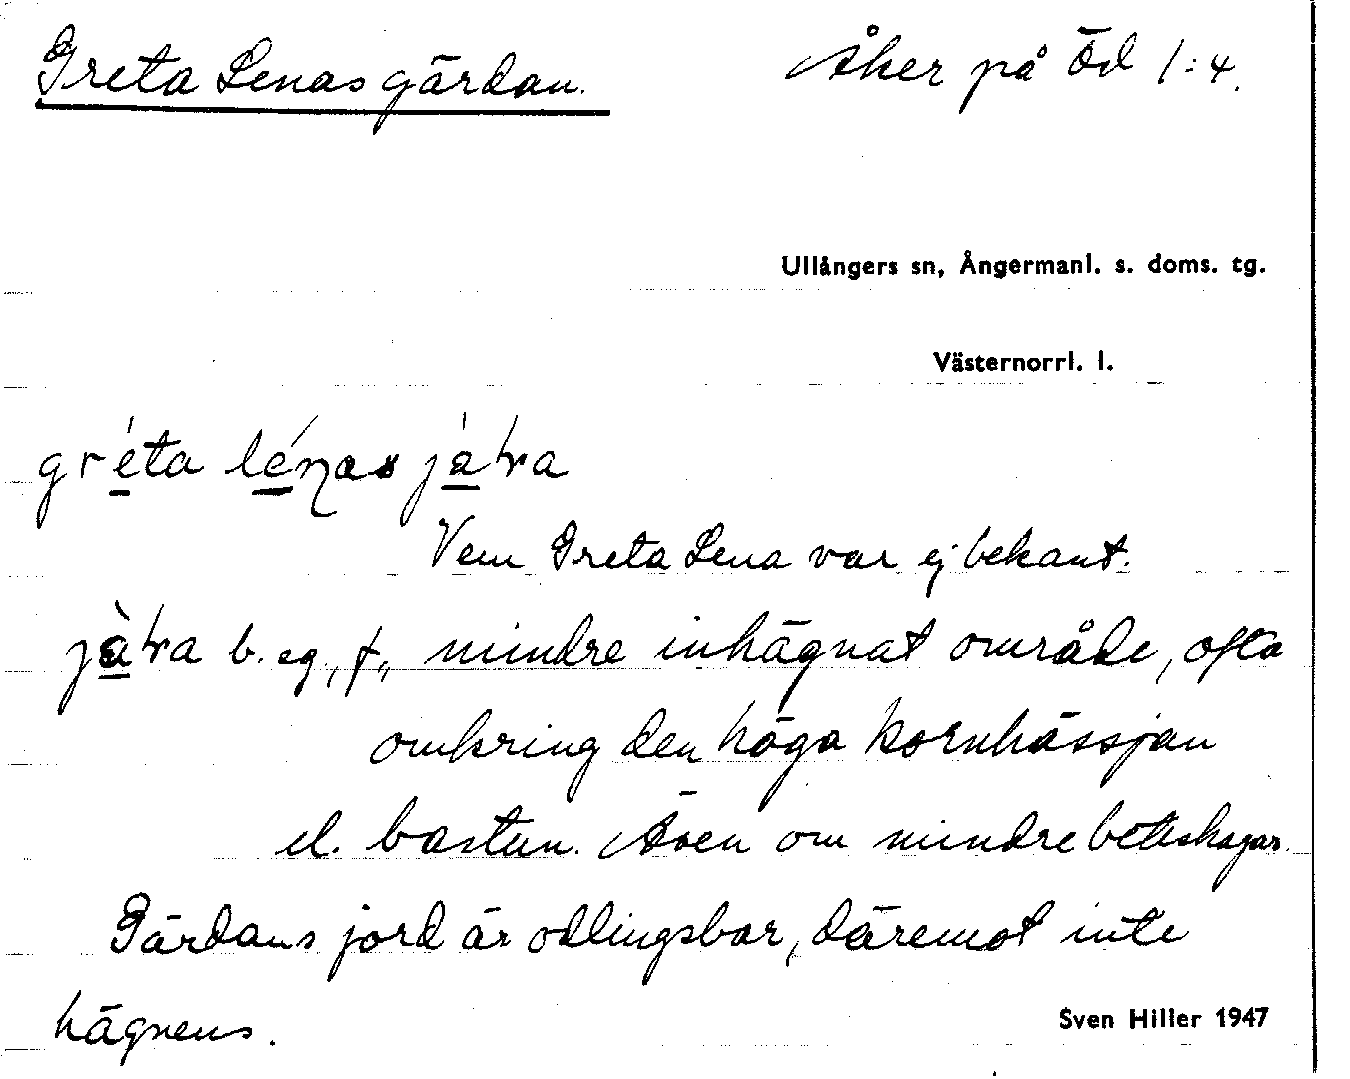 Greta Lenas gärdan. Åker på Öd 1:4.
Ullångers sn, Ångermanl. s. doms. tg.
Västernorrl. l.
gréta lénas
Vem Greta Lena var ej bekant.
b. eg., f., mindre inhägnat område, ofta
omkring den höga kornhässjan
el. bastun. Även om mindre beteshagar.
Gärdans jord är odlingsbar, däremot inte
hägnens.
Sven Hiller 1947